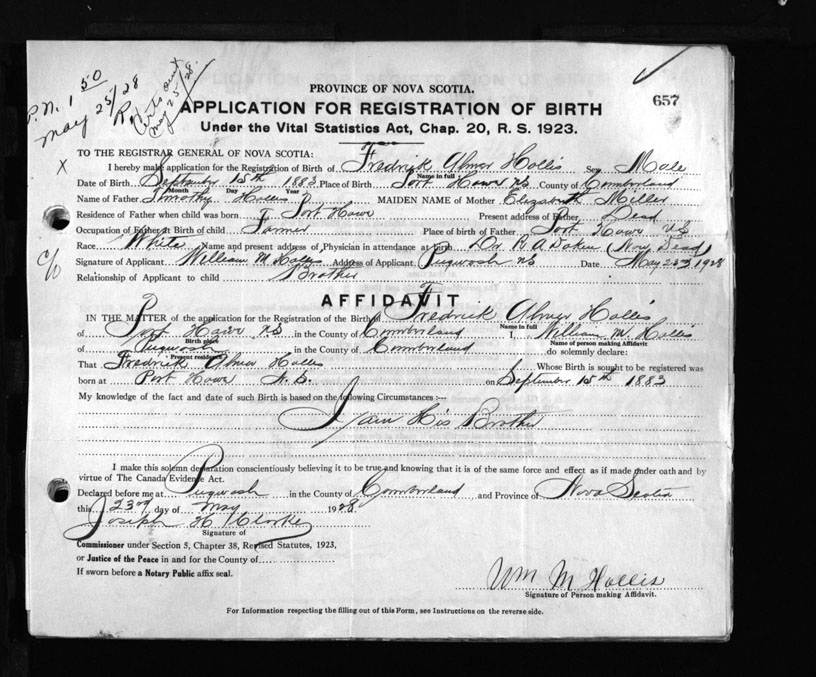 P.N. 1 50
May 25/28
Certs out
May 25/28.
PROVINCE OF NOVA SCOTIA.
APPLICATION FOR REGISTRATION OF BIRTH
657
Under the Vital Statistics Act, Chap. 20, R. S. 1923.
X
TO THE REGISTRAR GENERAL OF NOVA SCOTIA:
I hereby make application for the Registration of Birth of Fredrick Abner Hollis Sex Male
Name in full
Date of Birth September 15th 1883 Place of Birth Port Howe NS County of Cumberland
Month Day Year
Name of Father Timothy Hollis MAIDEN NAME of Mother Elizabeth Miller
Residence of Father when child was born Port Howe Present address of Father Dead
Occupation of Father at Birth of child Farmer Place of birth of Father Port Howe NS
Race White Name and present address of Physician in attendance at birth Dr. (Now Dead)
c/o
Signature of Applicant William M Hollis Address of Applicant Pugwash NS Date May 23rd 1928
Relationship of Applicant to child Brother
AFFIDAVIT
IN THE MATTER of the application for the Registration of the Birth of Fredrick Abner Hollis
Name in full
of Port Howe NS in the County of Cumberland I, William M Hollis
Birth place
Name of person making Affidavit
of Pugwash in the County of Cumberland do solemnly declare:
Present residence
That Fredrick Abner Hollis Whose Birth is sought to be registered was
born at Port Howe N.S. on September 15th 1883
My knowledge of the fact and date of such Birth is based on the following Circumstances :—
I am His Brother
I make this solemn declaration conscientiously believing it to be true and knowing that it is of the same force and effect as if made under oath and by
virtue of The Canada Evidence Act.
Declared before me at Pugwash in the County of Cumberland and Province of Nova Scotia
this 23rd day of May 1928
Joseph H Clarke
Signature of
Commissioner under Section 5, Chapter 38, Revised Statutes, 1923,
or Justice of the Peace in and for the County of
If sworn before a Notary Public affix seal.
Wm M Hollis
Signature of Person making Affidavit.
For Information respecting the filling out of this Form, see Instructions on the reverse side.